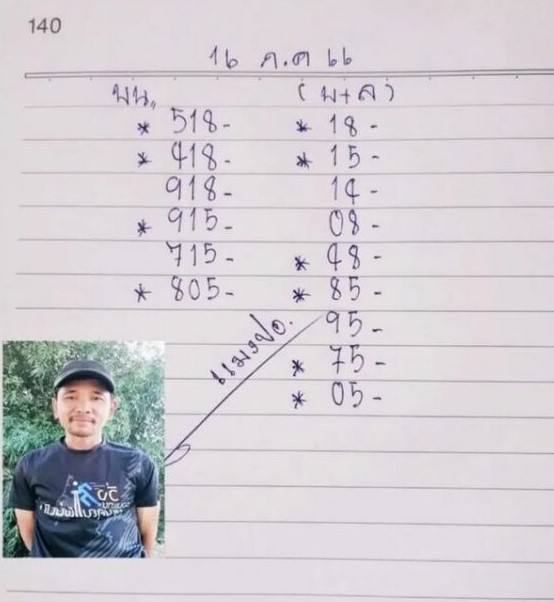 140
16 ต.ค 66
บน,, (บ+ล)
* 518- * 18-
* 418- * 15-
918- 14-
* 915- 08-
715- * 48-
* 805- * 85-
95-
* 75-
* 05-
แมงปอ.